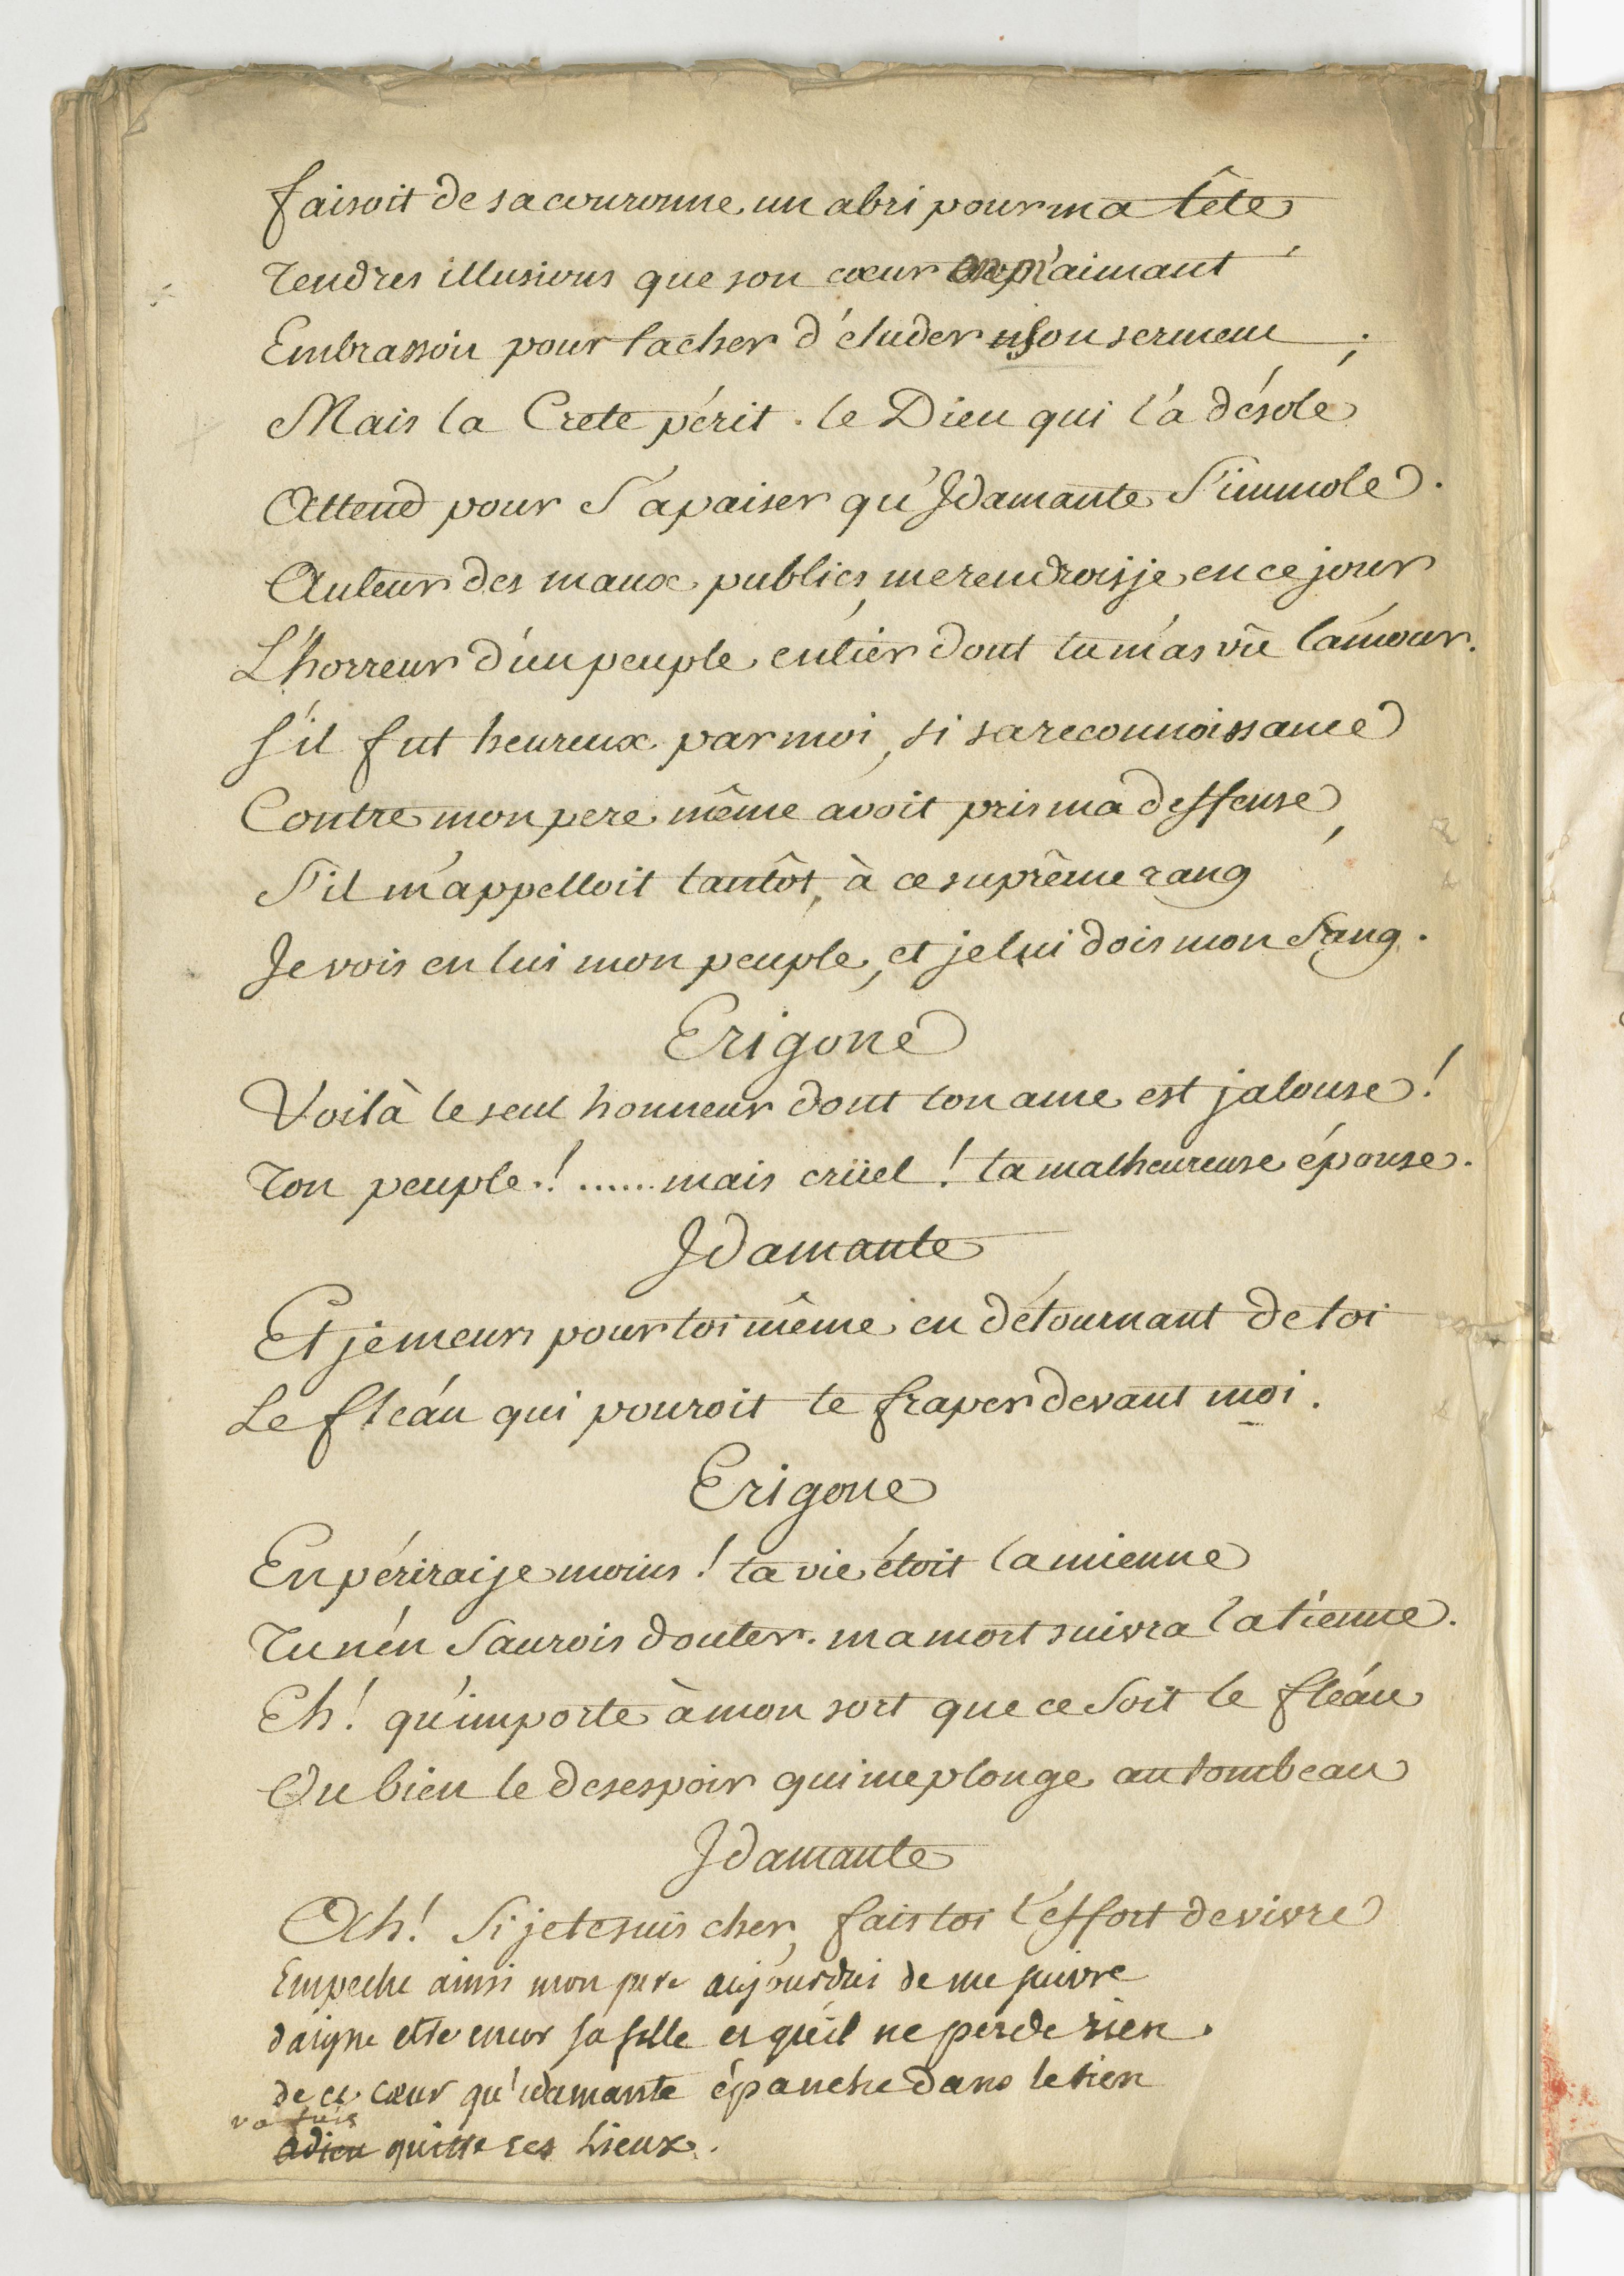 faisoit de sa couronne un abri pour ma tête
Tendres illusions que son cœur en m'aimant
Embrassoit pour tacher d'éluder son serment ;
Mais la Crete périt . le Dieu qui l'a désolé
Attend pour S'apaiser qu'Idamante S'immole .
Auteur des maux publics, me rendrois je en ce jour
L'horreur d'un peuple entier dont tu m'as vû l'amour .
S'il fut heureux par moi, si sa reconnoissance
Contre mon pere même avoit pris ma deffense,
S'il m'appelloit tantôt, à ce suprême rang
Je vois en lui mon peuple, et je lui dois mon Sang .
Erigone
Voilà le seul honneur dont ton ame est jalouse !
Ton peuple ! ...... mais crüel ! ta malheureuse épouse .
Idamante
Et je meurs pour toi même en détournant de toi
Le fléau qui pouroit te fraper devant moi .
Erigone
En périrai je moins ! ta vie étoit la mienne
Tu n'en Saurois douter . ma mort suivra la tienne .
Eh ! qu'importe à mon sort que ce Soit le fléau
Ou bien le desespoir qui me plonge au tombeau
Idamante
Ah ! Si je te suis cher, fais toi l'effort de vivre
Empeche ainsi mon pere aujourdui de me suivre
daigne etre encor sa fille et qu'il ne perde rien .
de ce cœur qu'idamante épanche dans le tien
va fuis
adieu quitte ces Lieux .